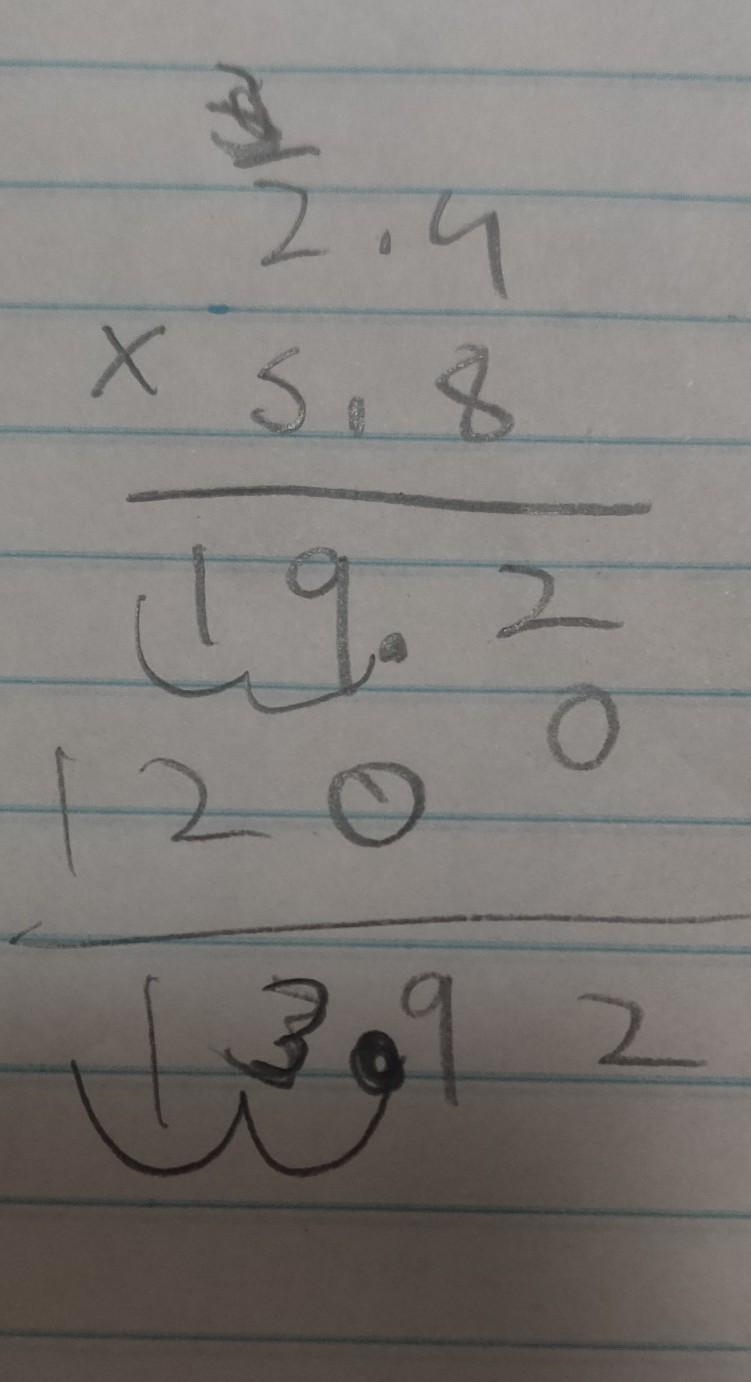 2.4
× 5.8
19.2
1200
13.92